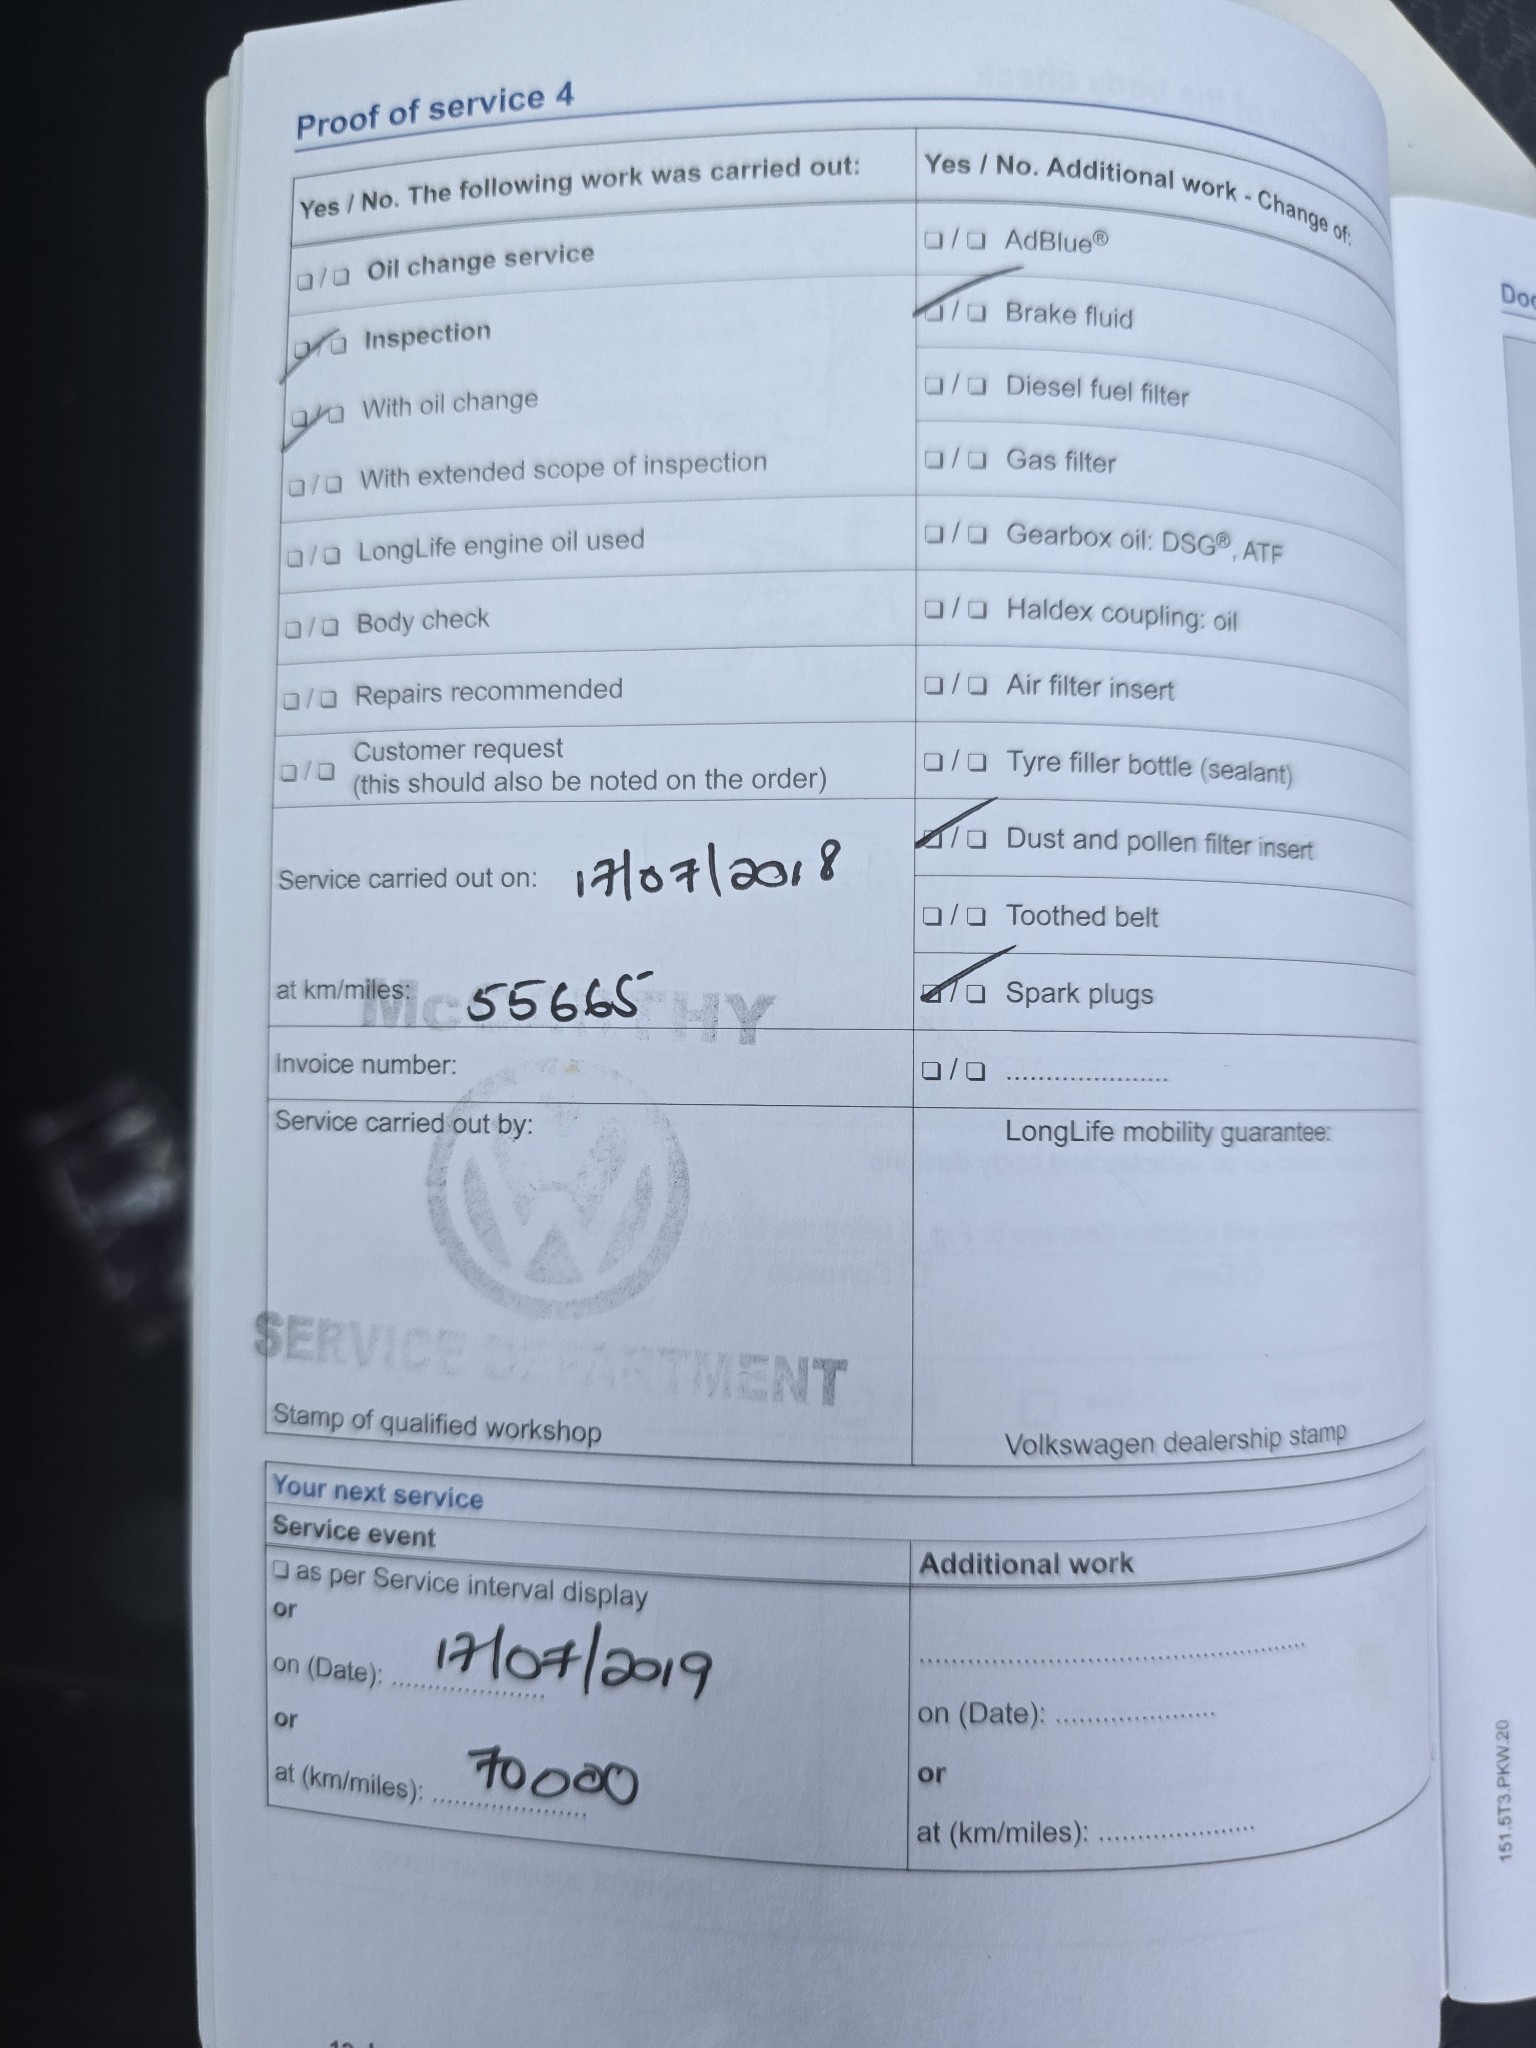 Proof of service 4
Yes / No. The following work was carried out:
Oil change service
Inspection
With oil change
With extended scope of inspection
LongLife engine oil used
Body check
Repairs recommended
Customer request
(this should also be noted on the order)
Service carried out on: 17/07/2018
at km/miles: 55665
Invoice number:
Service carried out by:
SERVICE DEPARTMENT
Stamp of qualified workshop
Yes / No. Additional work - Change of:
AdBlue®
Brake fluid
Diesel fuel filter
Gas filter
Gearbox oil: DSG®, ATF
Haldex coupling: oil
Air filter insert
Tyre filler bottle (sealant)
Dust and pollen filter insert
Toothed belt
Spark plugs
......................
LongLife mobility guarantee:
Volkswagen dealership stamp
Your next service
Service event
as per Service interval display
or
on (Date): 17/07/2019
or
at (km/miles): 70000
Additional work
on (Date): ......................
or
at (km/miles): ......................
151.5T3.PKW.20